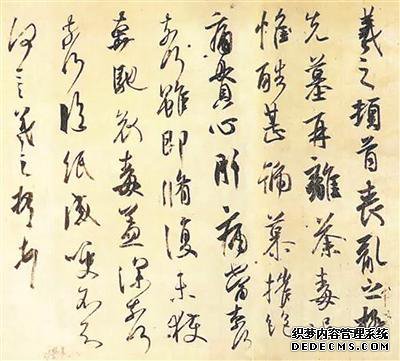 羲之頓首喪亂之極
先墓再離荼毒追
惟酷甚號慕摧絶
痛貫心肝痛當奈何
奈何雖即脩復未獲
奔馳哀毒益深奈何
奈何臨紙感哽不知
何言羲之頓首頓首
织梦内容管理系统
DEDECMS.COM